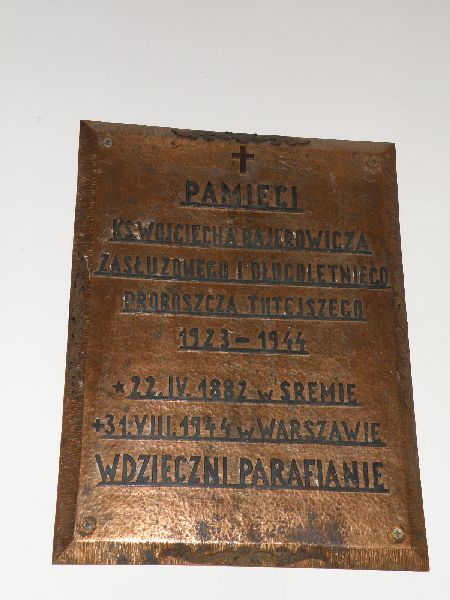 PAMIĘCI
KS WOJCIECHA BAJEROWICZA
ZASŁUŻONEGO I DŁUGOLETNIEGO
PROBOSZCZA TUTEJSZEGO
1923 – 1944
* 22.IV.1882 w SREMIE
+31.VIII.1944 w WARSZAWIE
WDZIĘCZNI PARAFIANIE